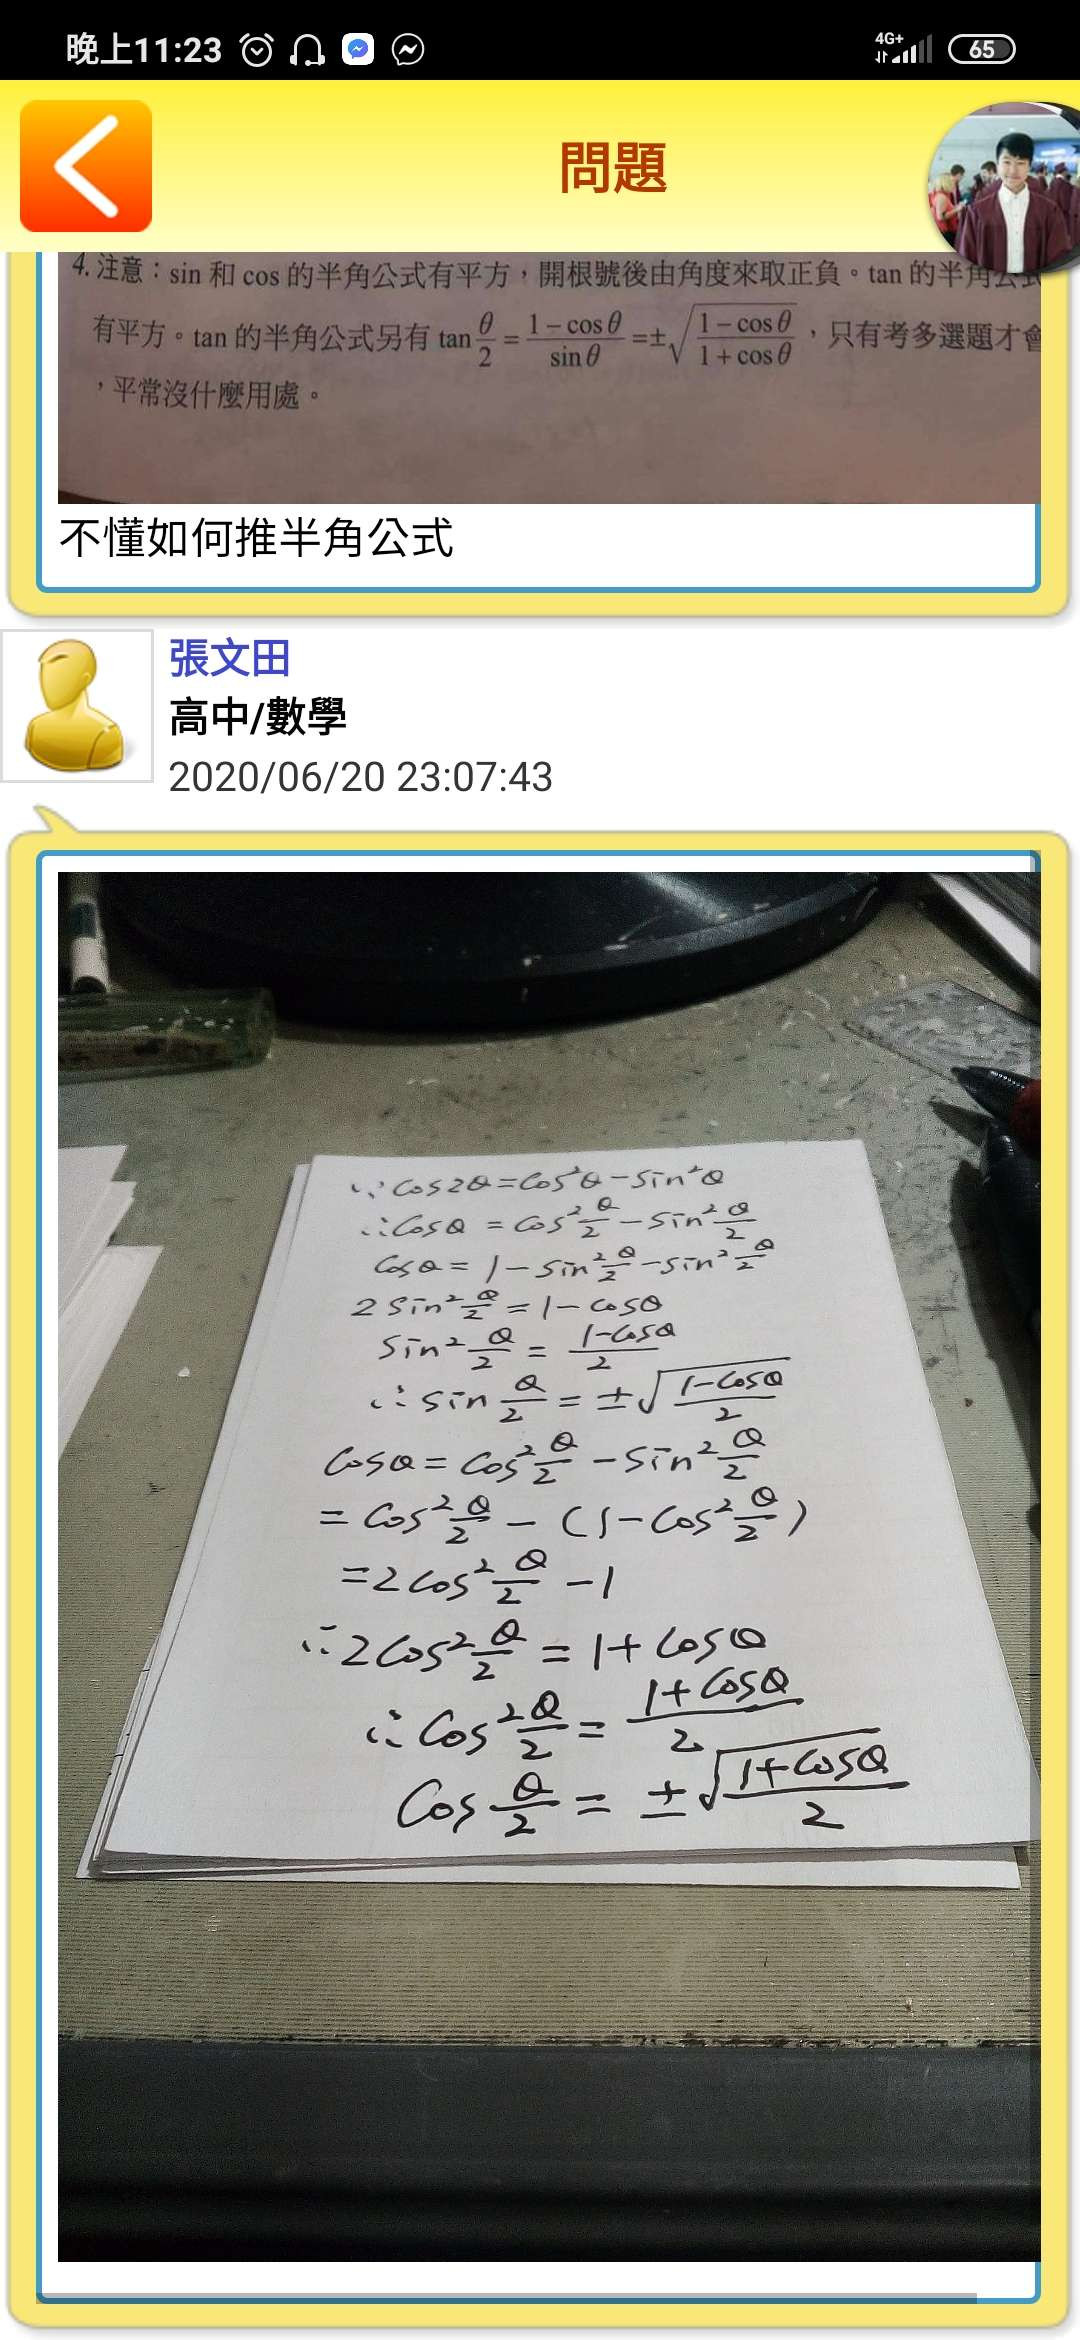 晚上11:23
4G+
65
問題
4. 注意：sin 和 cos 的半角公式有平方，開根號後由角度來取正負。tan 的半角公式
有平方。tan 的半角公式另有 tan θ/2 = (1 − cos θ)/(sin θ) = ±√((1 − cos θ)/(1 + cos θ))，只有考多選題才會
，平常沒什麼用處。
不懂如何推半角公式
張文田
高中/數學
2020/06/20 23:07:43
∵ cos2θ = cos²θ − sin²θ
∴ cosθ = cos² θ/2 − sin² θ/2
cosθ = 1 − sin² θ/2 − sin² θ/2
2 sin² θ/2 = 1 − cosθ
sin² θ/2 = (1−cosθ)/2
∴ sin θ/2 = ±√((1−cosθ)/2)
cosθ = cos² θ/2 − sin² θ/2
= cos² θ/2 − (1 − cos² θ/2)
= 2cos² θ/2 − 1
∴ 2cos² θ/2 = 1 + cosθ
∴ cos² θ/2 = (1 + cosθ)/2
cos θ/2 = ±√((1 + cosθ)/2)